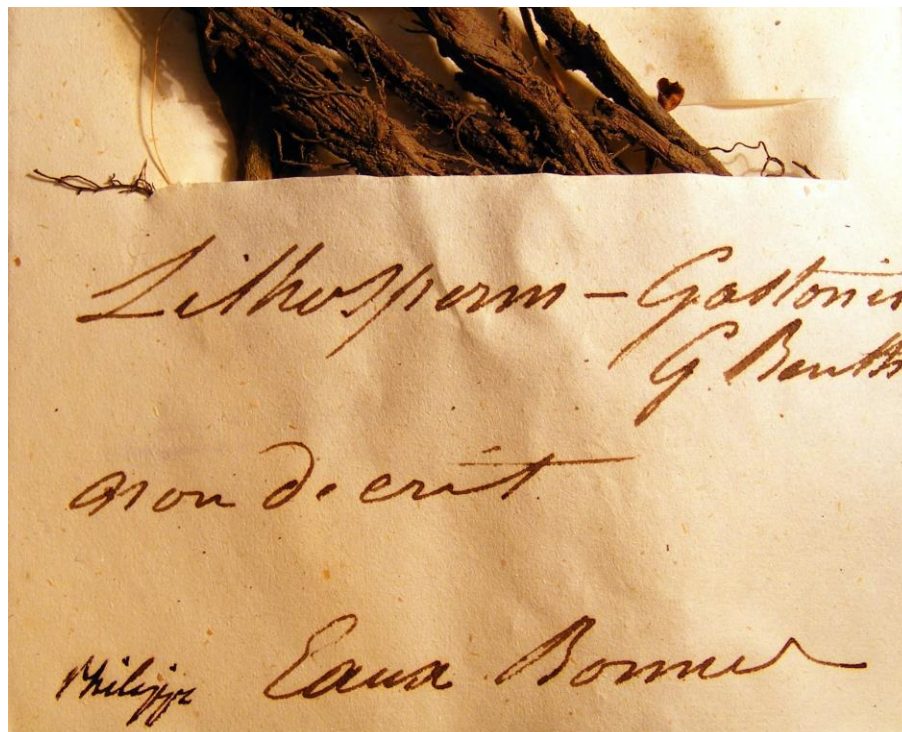 Lithosperm - Gastonis
G Benth
non decrit
Philippe Eaux Bonnes